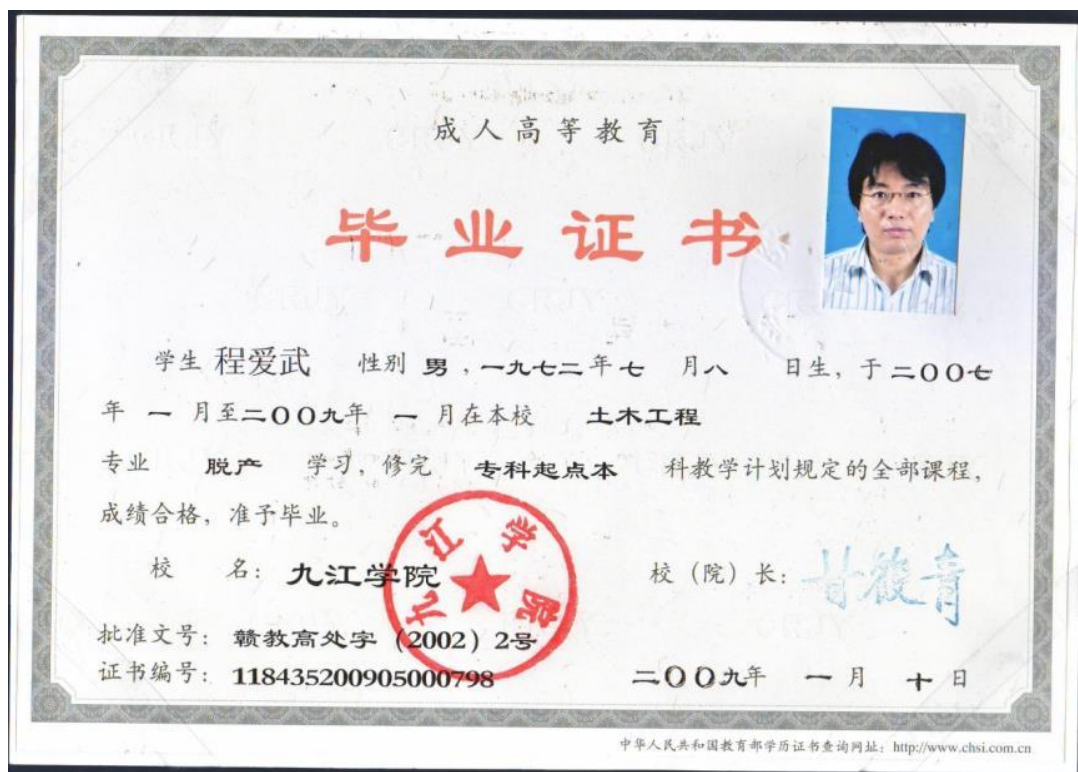 成人高等教育
毕业证书
学生 程爱武 性别 男，一九七二年七 月八 日生，于二〇〇七
年 一 月至二〇〇九年 一 月在本校 土木工程
专业 脱产 学习，修完 专科起点本 科教学计划规定的全部课程，
成绩合格，准予毕业。
校 名：九江学院
校（院）长：甘筱青
九江学院
批准文号：赣教高处字（2002）2号
证书编号：118435200905000798
二〇〇九年 一 月 十 日
中华人民共和国教育部学历证书查询网址：http://www.chsi.com.cn